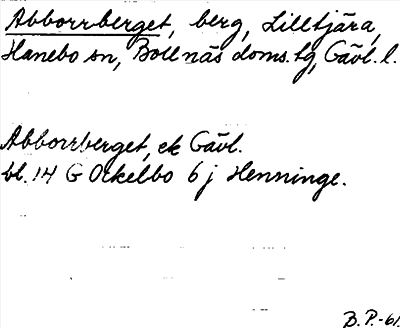 Abborrberget, berg, Lilltjära,
Hanebo sn, Bollnäs doms.tg, Gävl. l.
Abborrberget, ek Gävl.
bl. 14 G Ockelbo 6 j Henninge.
B.P.-61.